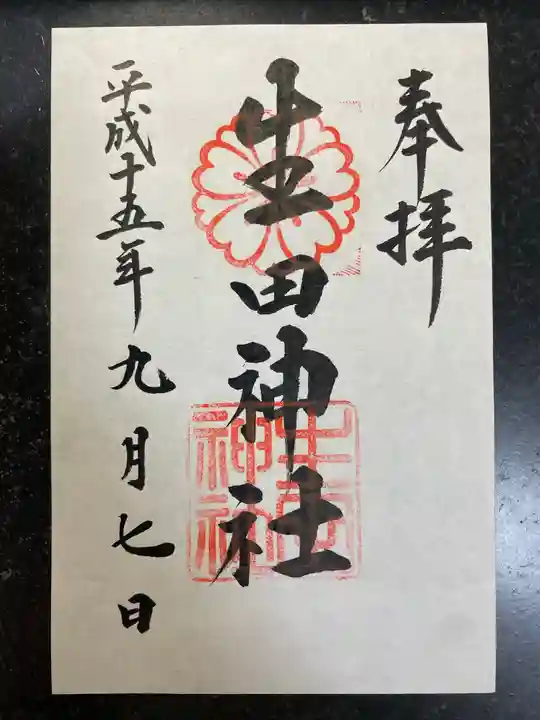 奉拝
生田神社
平成十五年九月七日
生田神社